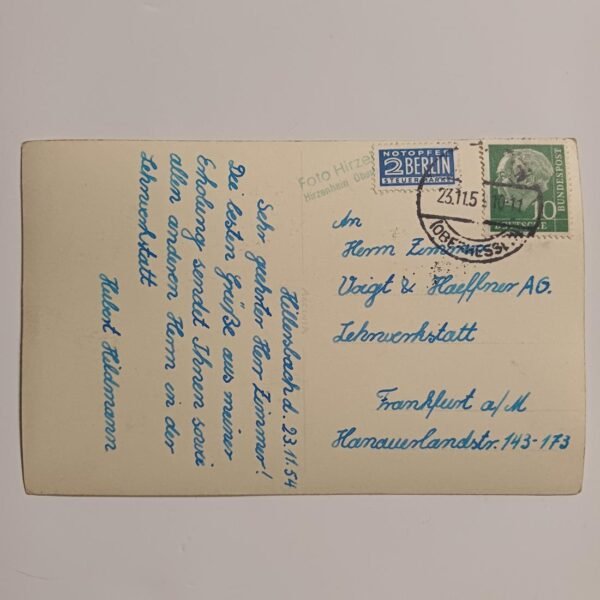 Hillersbach d. 23.11.54
Sehr geehrter Herr Zimmer!
Die besten Grüße aus meiner
Erholung sendet Ihnen sowie
allen anderen Herrn in der
Lehrwerkstatt
Hubert Hildmann
Foto Hirze
Hirzenhain
NOTOPFER
2 BERLIN
STEUERMARKE
23.11.5
10-11
(OBERHESS
DEUTSCHE
BUNDESPOST
An
Herrn Zimmer
Voigt & Haeffner AG.
Lehrwerkstatt
Frankfurt a/M
Hanauerlandstr. 143-173